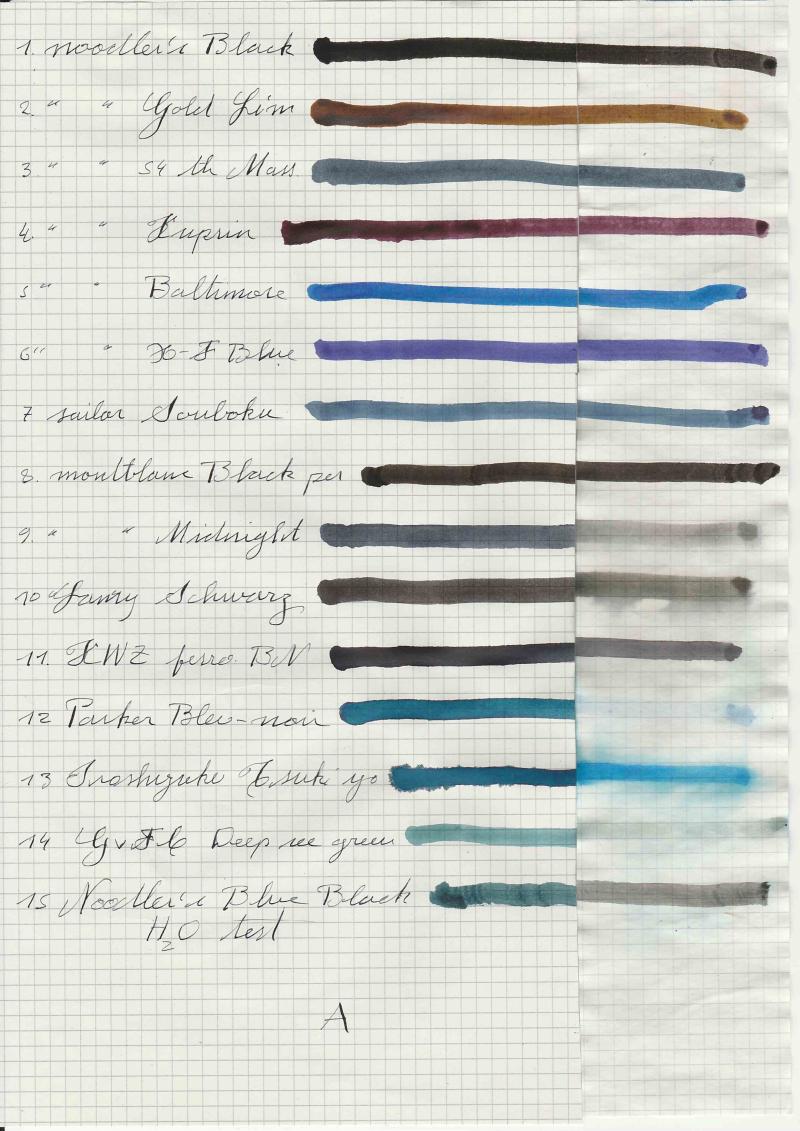 1. Noodler's Black
2. " " Gold Lim
3 " " 54 th Mass.
4. " " Kuprin
5 " " Baltimore
6 " " X-F Blue
7 sailor Souboku
8. montblanc Black per
9. " " Midnight
10 Lamy Schwarz
11. KWZ ferro BN
12 Parker Bleu-noir
13 Iroshizuku Tsuki yo
14 GvFC Deep see green
15 Noodler's Blue Black
H2O test
A